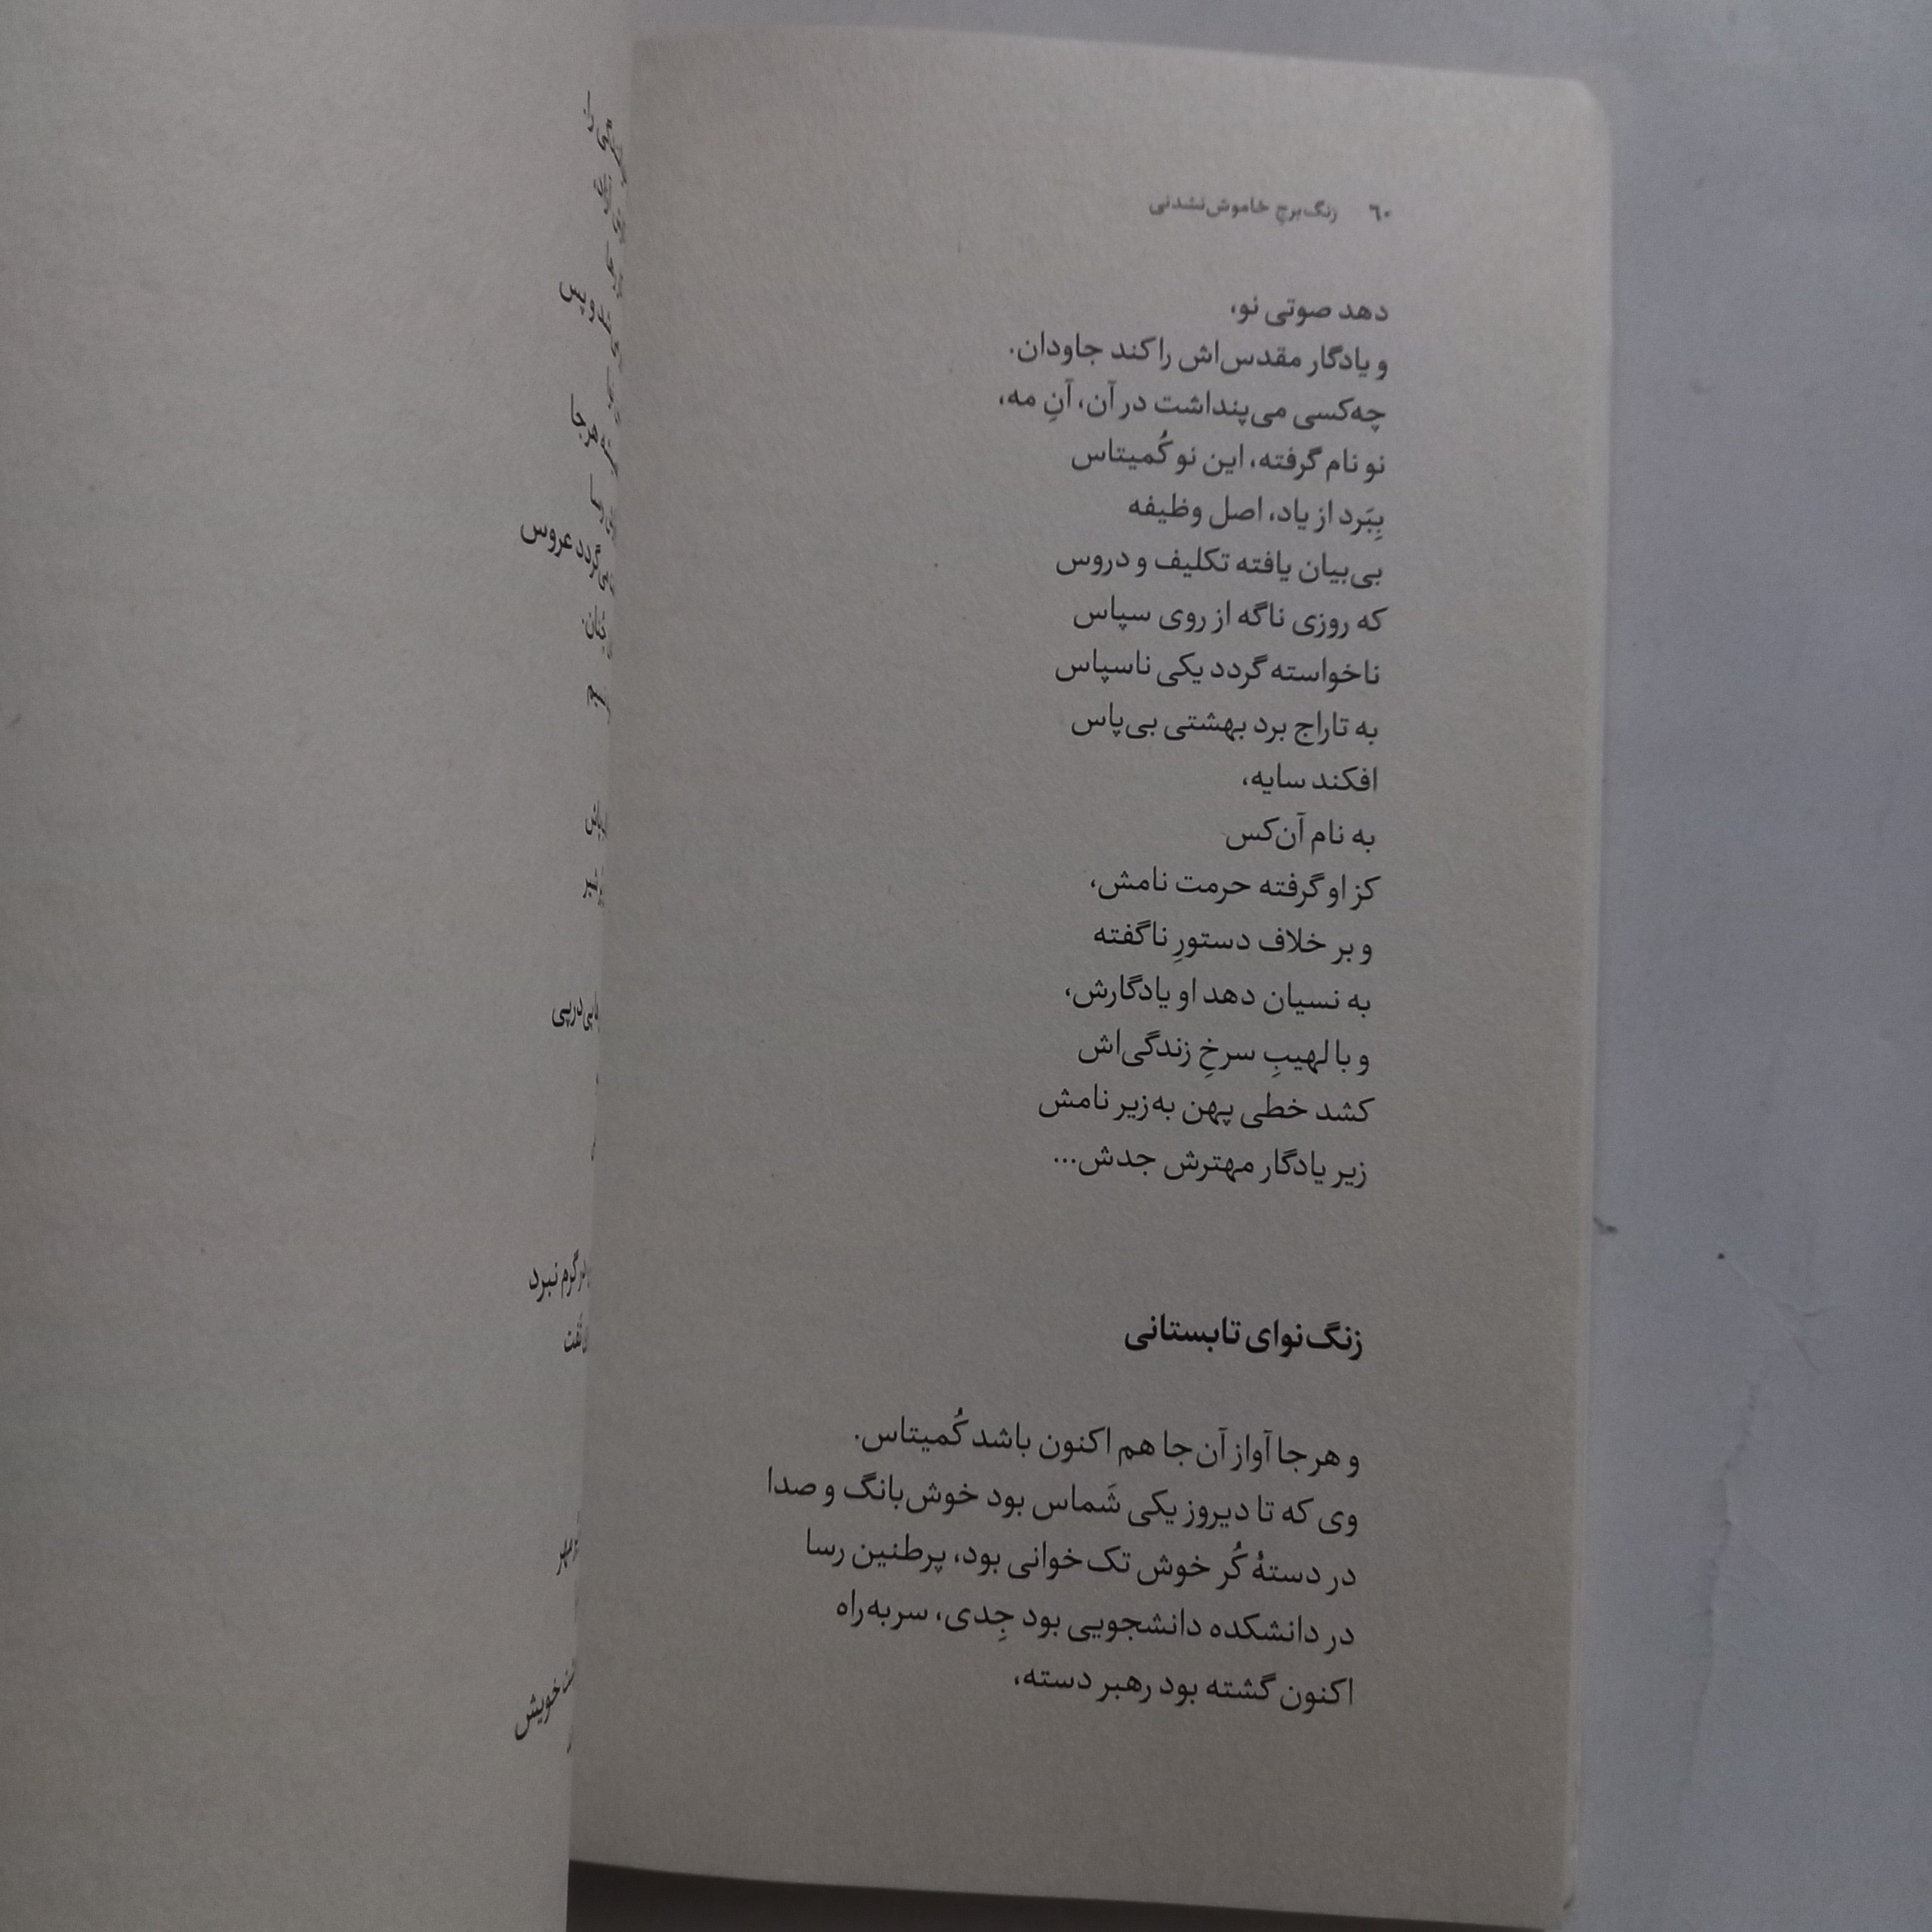 ۶۰ زنگ‌برجِ خاموش‌نشدنی
دهد صوتی نو،
و یادگار مقدس‌اش را کند جاودان.
چه‌کسی می‌پنداشت در آن، آنِ مه،
نو نام گرفته، این نو کُمیتاس
بِبَرد از یاد، اصل وظیفه
بی‌بیان یافته تکلیف و دروس
که روزی ناگه از روی سپاس
ناخواسته گردد یکی ناسپاس
به تاراج برد بهشتی بی‌پاس
افکند سایه،
به نام آن‌کس
کز او گرفته حرمت نامش،
و بر خلاف دستورِ ناگفته
به نسیان دهد او یادگارش،
و با لهیبِ سرخِ زندگی‌اش
کشد خطی پهن به‌زیر نامش
زیر یادگار مهترش جدش...
زنگ‌نوای تابستانی
و هرجا آواز آن‌جا هم اکنون باشد کُمیتاس.
وی که تا دیروز یکی شَماس بود خوش‌بانگ و صدا
در دستهٔ کُر خوش تک‌خوانی بود، پرطنین رسا
در دانشکده دانشجویی بود جِدی، سربه‌راه
اکنون گشته بود رهبر دسته،
و پس
هرجا
گردد عروس
پی‌درپی
گرم نبرد
خویش